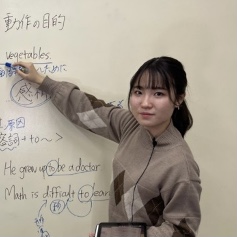 動作の目的
vegetables.
ために
感情
原因
容詞 + to ~ >
He grew up to be a doctor
Math is difficult to lear